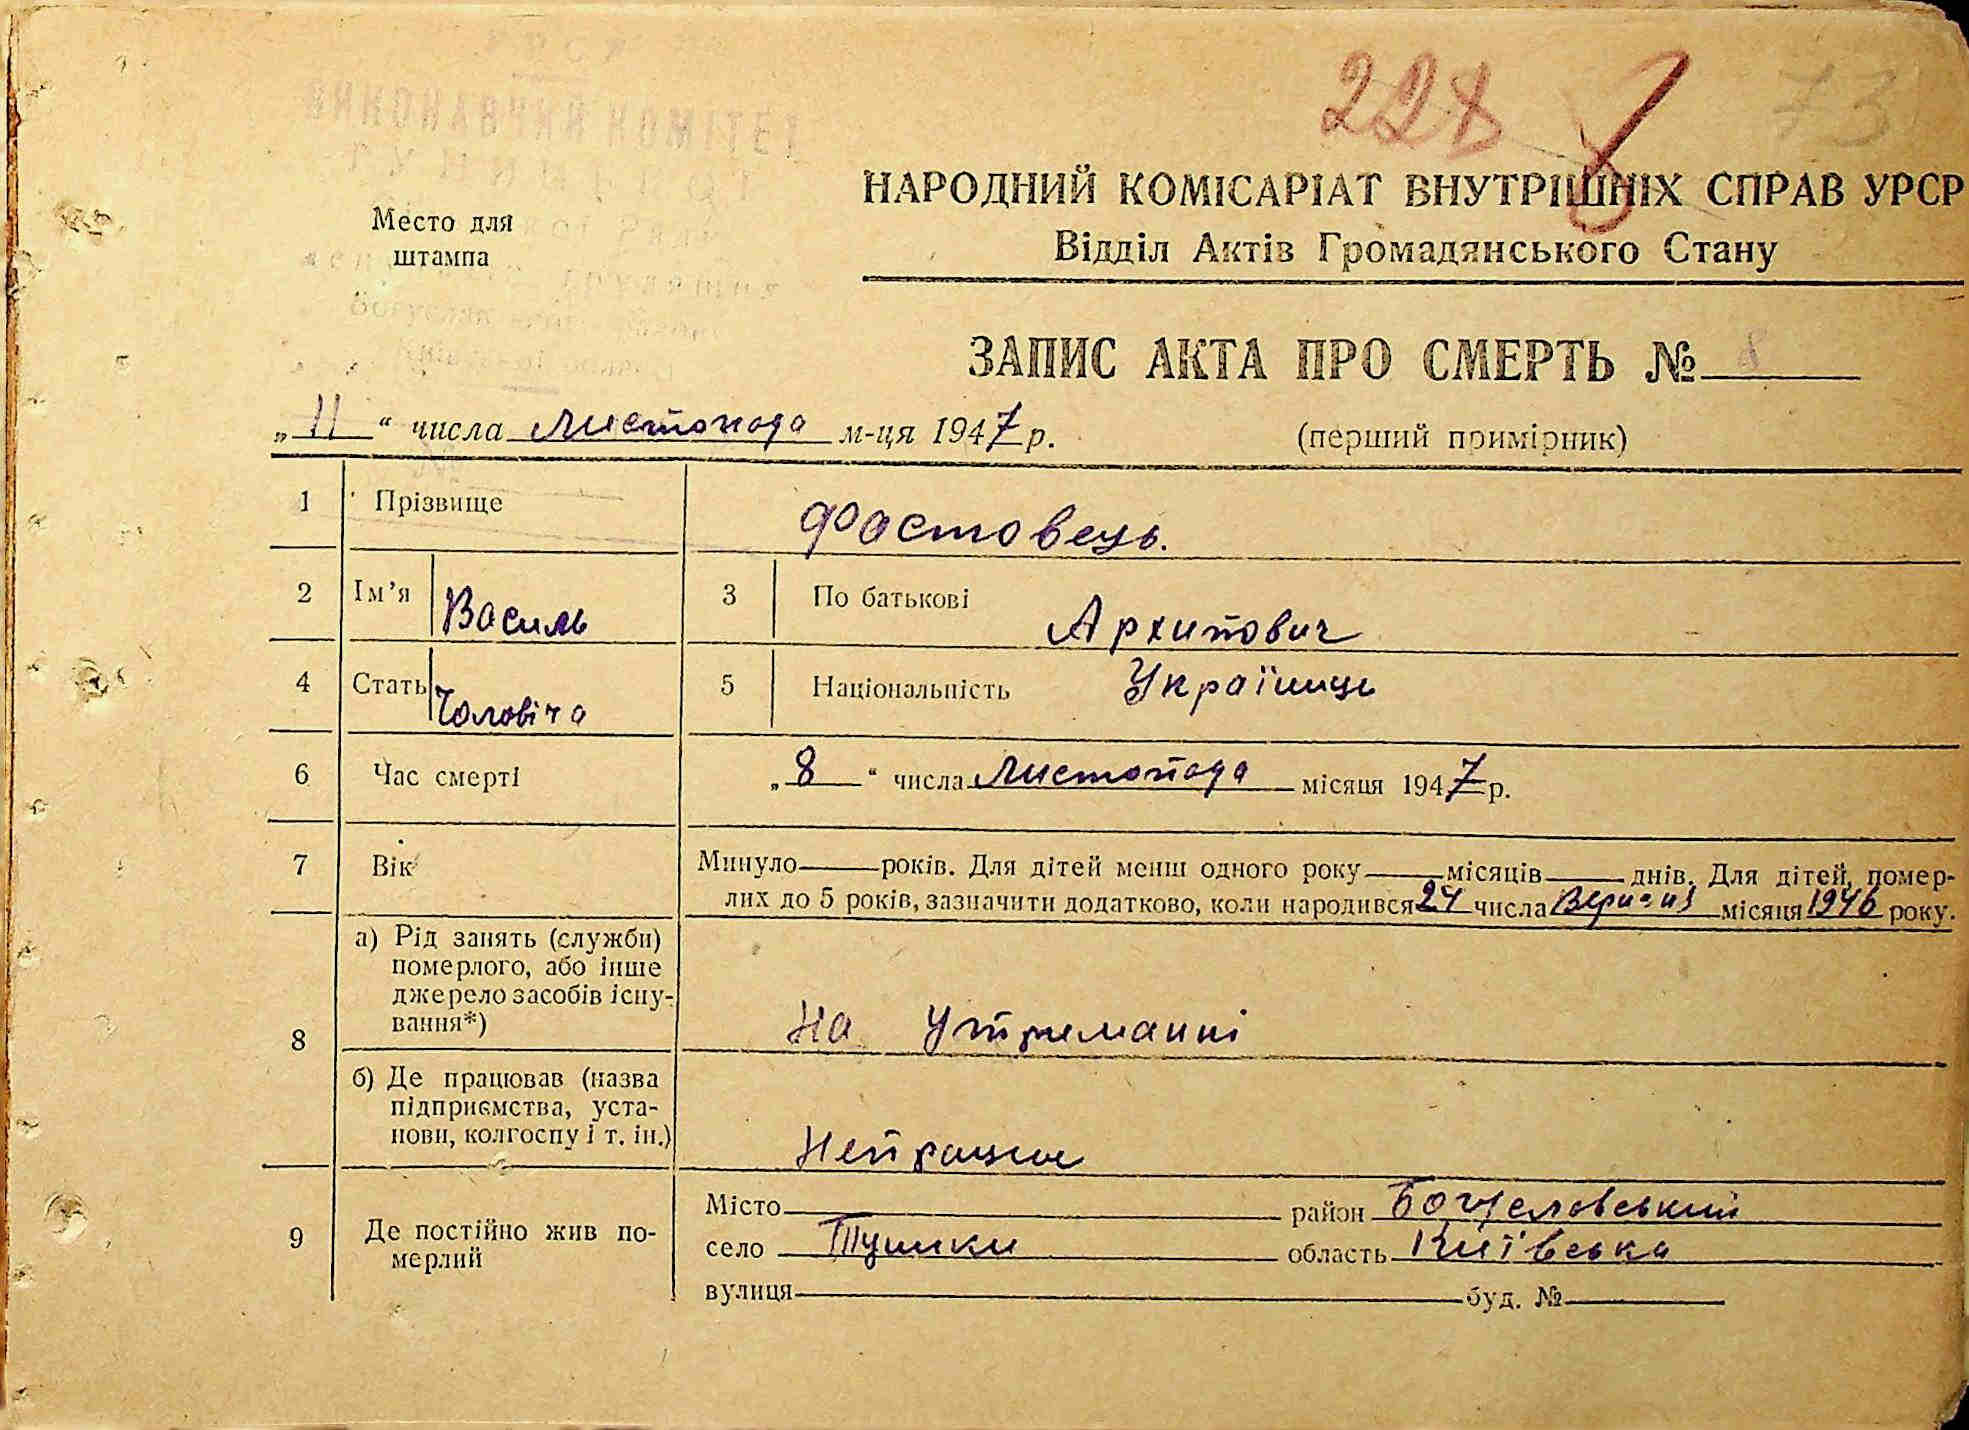 228
73
ВИКОНАВЧИЙ КОМІТЕТ
Место для
штампа
НАРОДНИЙ КОМІСАРІАТ ВНУТРІШНІХ СПРАВ УРСР
Відділ Актів Громадянського Стану
ЗАПИС АКТА ПРО СМЕРТЬ № 8
„11“ числа листопада м-ця 1947 р.
(перший примірник)
1 Прізвище Фастовець.
2 Ім’я Василь 3 По батькові Архипович
4 Стать Чоловіча 5 Національність Українець
6 Час смерті „8“ числа листопада місяця 1947 р.
7 Вік Минуло років. Для дітей менш одного року місяців днів. Для дітей, помер-
лих до 5 років, зазначити додатково, коли народився 24 числа Вересня місяця 1946 року.
8 а) Рід занять (служби)
померлого, або інше
джерело засобів існу-
вання*)
На утриманні
б) Де працював (назва
підприємства, уста-
нови, колгоспу і т. ін.)
Непрацює
9 Де постійно жив по-
мерлий
Місто район Богуславський
село Тушики область Київська
вулиця буд. №